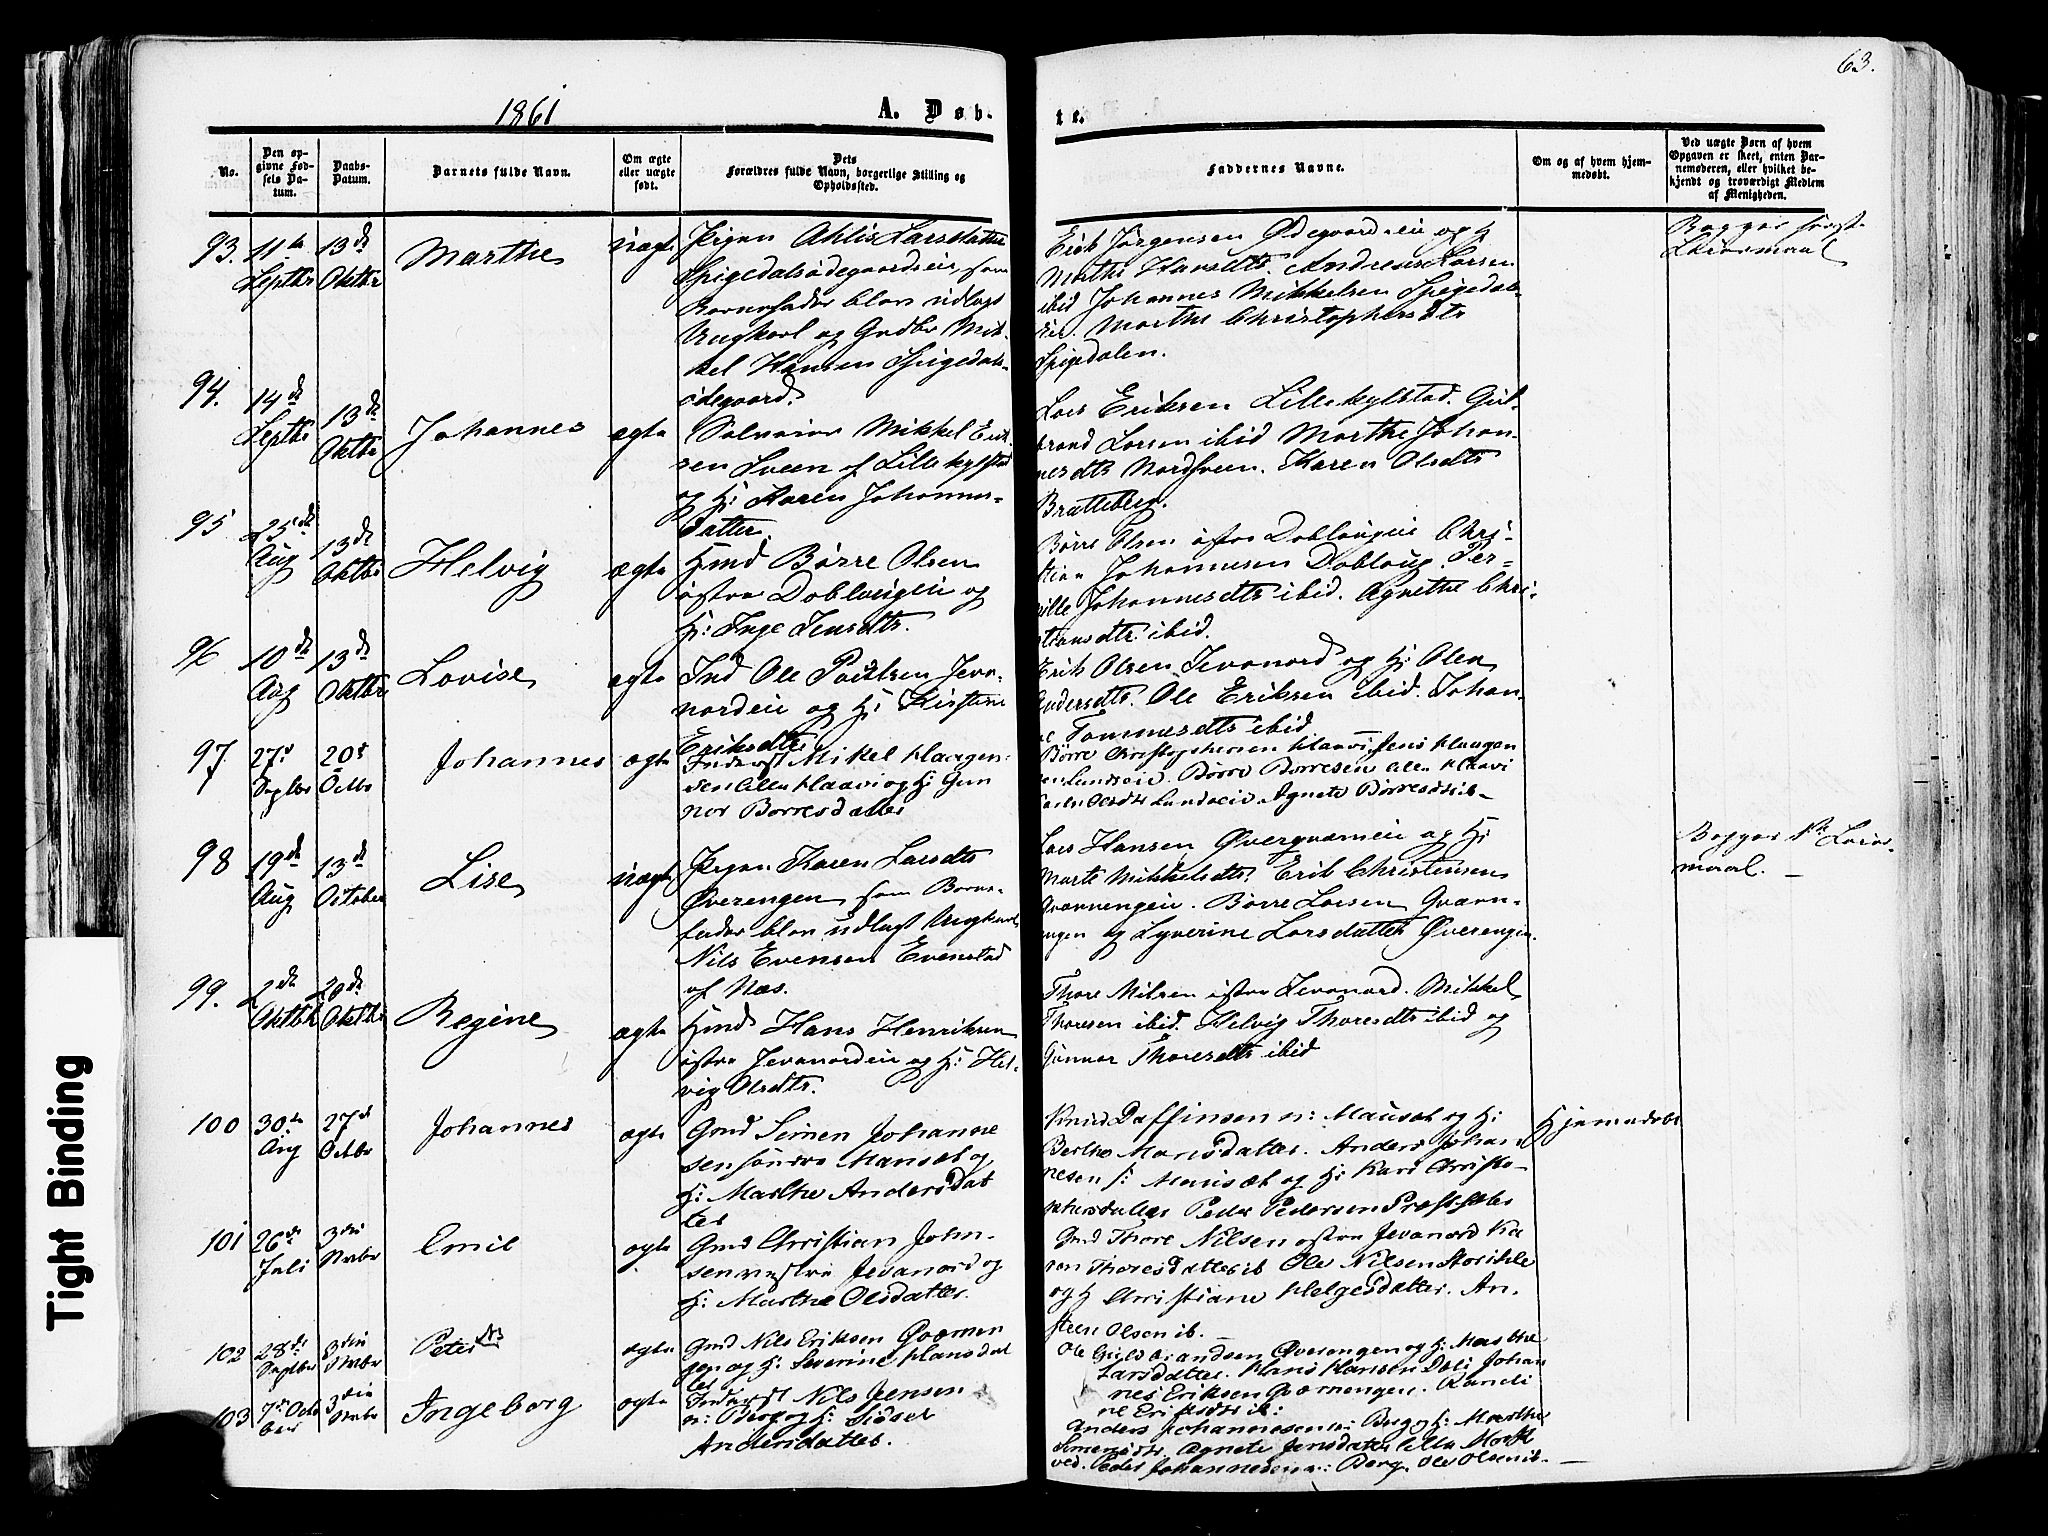 63.
1861
A. Døb-
te.
No.
Den op-
givne Fød-
sels Da-
tum.
Daabs-
Datum.
Barnets fulde Navn.
Om ægte
eller uægte
født.
Dets
Forældres fulde Navn, borgerlige Stilling og
Opholdssted.
Faddernes Navne.
Om og af hvem hjem-
medøbt.
Ved uægte Børn af hvem
Opgaven er skeet, enten Bar-
nemoderen, eller hvilket be-
kjendt og troværdigt Medlem
af Menigheden.
93. 11te Septbr 13de Oktbr Marthe uægte
Pigen Larsdatter
som
Barnefader blev udlagt
Ungkarl og Mik-
kel Hansen Spigedals-
ødegaard.
Erik Jørgensen Ødegaardseie og H
Marthe Hansdtr. Andreas Larsen
ibid Johannes Mikkelsen Spigedals-
eie. Marthe Christophersdtr
Spigedalen.
Begges første
Leiermaal
94. 14de Septbr 13de Oktbr Johannes ægte
Mikkel Erik-
sen Sveen af Lillekylstad
og H: Karen Johannes-
datter.
Lars Eriksen Lillekylstad. Gul-
brand Larsen ibid Marthe Johan-
nesdtr Nordsveen. Karen Olsdtr
Bratteberg.
95 25de Aug 13de Oktbr Helvig ægte
Hmd Børre Olsen
østre Doblougeie og
H: Inge Jensdtr.
Børre Olsen østre Doblougeie Chri-
stian Johannesen Dobloug. Per-
nille Johannesdtr ibid. Agnethe Chri-
stiansdtr ibid.
96 10de Aug 13de Oktbr Lovise ægte
Ind Ole Poulsen Jeva-
nordeie og H: Kirstine
Eriksdtr
Erik Olsen Jevanord og H: Olea
Andersdtr. Ole Eriksen ibid. Johan-
ne Tommesdtr ibid
97. 27d Septbr 20d Octbr Johannes ægte
Inderst Mikel Haagen-
sen lille Haavi og H: Gun
nor Børresdatter
Børre Christophersen Haavi, Jens Haagen
sen Lundseie. Børre Børresen lille Haavi
Karen Olsdtr Lundseie. Agnete Børresdtr ib
98 19de Aug 13de October Lise uægte
Pigen Karen Larsdtr
Øverengen, som Barne-
fader blev udlagt Ungkarl
Nils Evensen Evenstad
af Næs.
Lars Hansen Øverqværneie og H:
Marte Mikkelsdtr. Erik Christensen
Qværnengeie. Børre Larsen Qværn-
engen og Syverine Larsdatter Øverengen.
Begges 1ste Leier-
maal. —
99. 2de Oktbr 20de Oktbr Regine ægte
Hmd Hans Henriksen
østre Jevanordeie og H: Hel-
vig Olsdtr.
Thore Nilsen østre Jevanord. Mikkel
Thoresen ibid. Helvig Thoresdtr ibid og
Gunnor Thoresdtr ibid
100 30te Aug 27d Octbr Johannes ægte
Gmd Simen Johanne
sen søndre Mausæt og
H: Marthe Andersdat
ter
Knud Daffinsen n: Mausæt og H:
Berthe Monsdatter. Anders Johan
nesen s: Mausæt og H: Kari Christo-
phersdatter Peder Pedersen Præstsæter
Hjemmedøbt
101 26de Juli 3die Novbr Emil ægte
Gmd Christian John-
sen vestre Jevanord og
H: Marthe Olsdatter.
Gmd Thore Nilsen østre Jevanord Ka
ren Thoresdatter ib Ole Nilsen Storihle
og H Christiane Helgesdatter. An-
steen Olsen ib. —
102 28de Septbr 3die Novbr Peter ægte
Gmd Nils Eriksen Qværnen
gen og H: Severine Hansdat
ter
Ole Gulbrandsen Øverengen og H: Marthe
Larsdatter. Hans Hansen Dæli Johan
nes Eriksen Qværnengen. Randi
ne Eriksdtr ib:
103 7de Octo
ber 3die Novbr Ingeborg ægte
Inderst Nils Jensen
n: Berg og H: Sidsel
Andersdatter.
Anders Johannesen n: Berg og H: Marthe
Simensdtr. Agnete Jensdatter lille
ved. Peder Johannesen n: Berg. Ole Olsen ib. —
Tight Binding